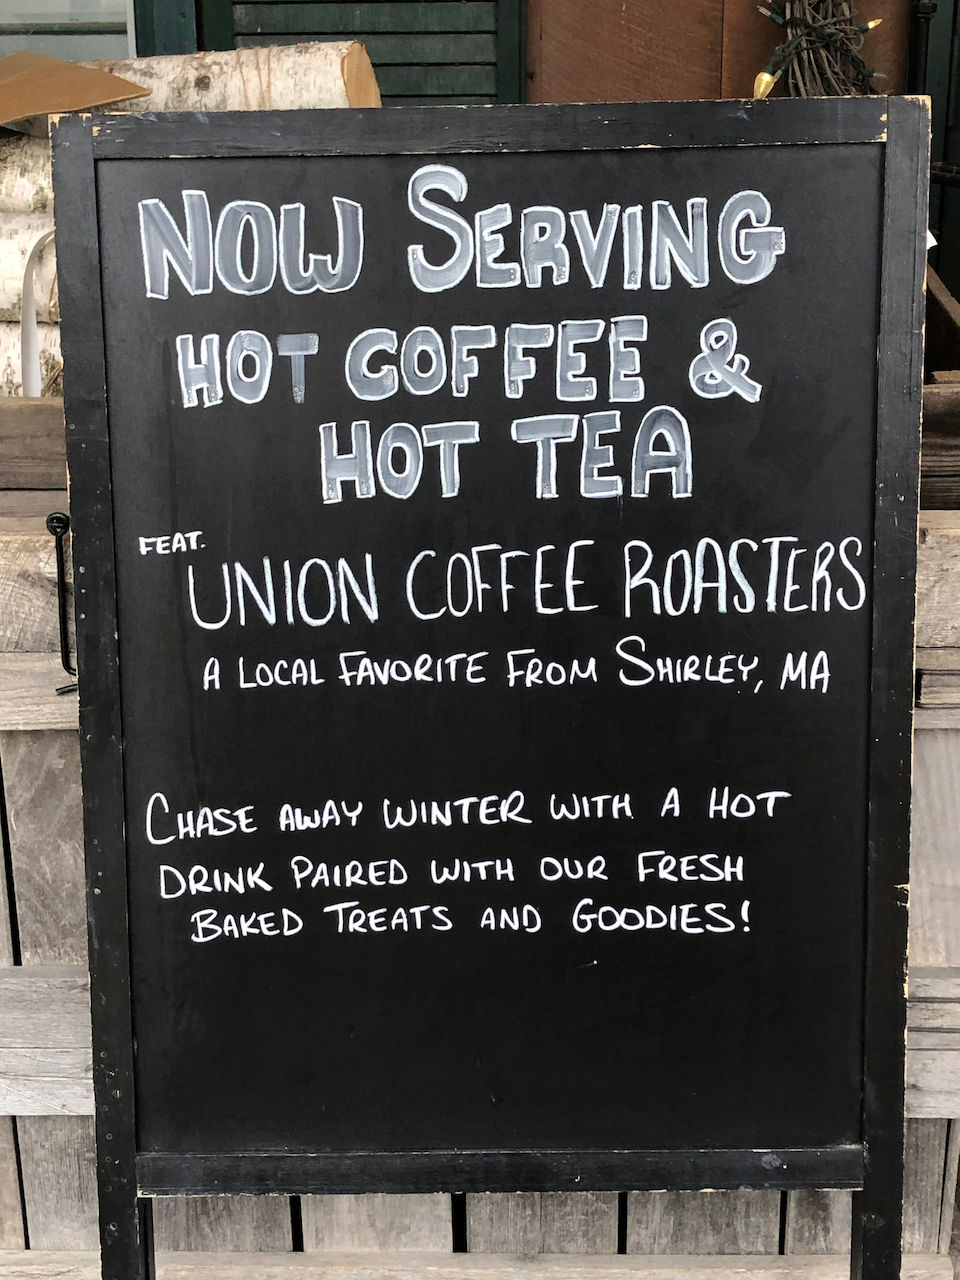 NOW SERVING
HOT COFFEE &
HOT TEA
FEAT.
UNION COFFEE ROASTERS
A LOCAL FAVORITE FROM SHIRLEY, MA
CHASE AWAY WINTER WITH A HOT
DRINK PAIRED WITH OUR FRESH
BAKED TREATS AND GOODIES!